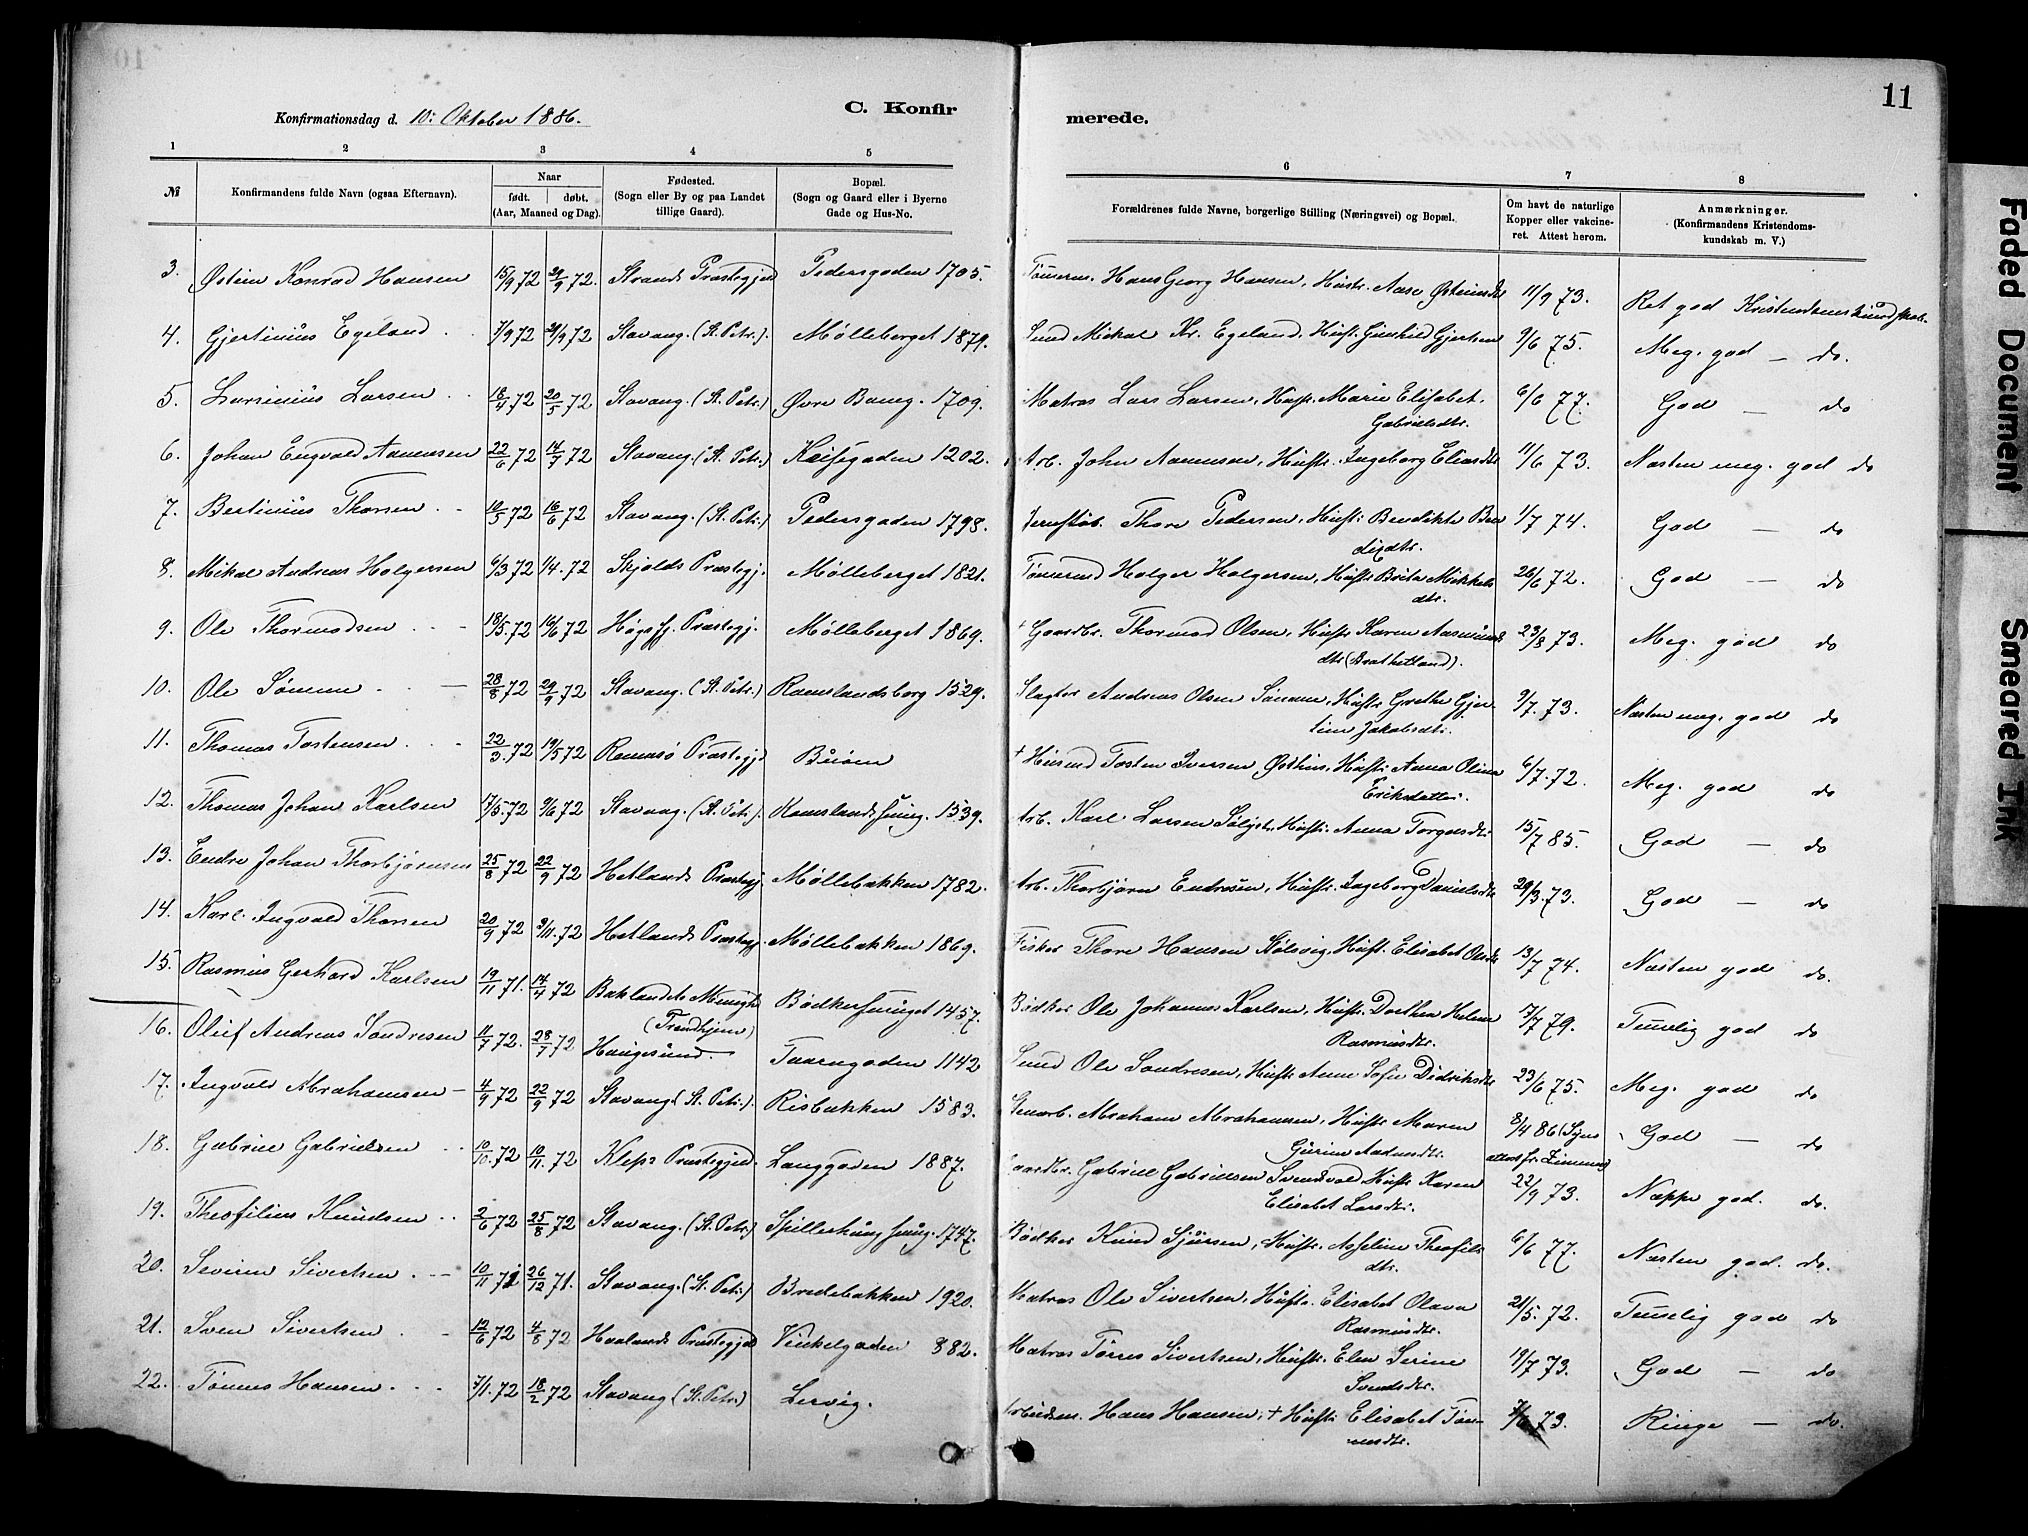 11
Konfirmationsdag d. 10: Oktober 1886.
C. Konfirmerede.
1 2 3 4 5 6 7 8
№ Konfirmandens fulde Navn (ogsaa Efternavn). Naar født. døbt. (Aar, Maaned og Dag). Fødested. (Sogn eller By og paa Landet tillige Gaard). Bopæl. (Sogn og Gaard eller i Byerne Gade og Hus-No. Forældrenes fulde Navne, borgerlige Stilling (Næringsvei) og Bopæl. Om havt de naturlige Kopper eller vakcineret. Attest herom. Anmærkninger. (Konfirmandens Kristendomskundskab m. V.)
3. Østein Konrad Hansen 15/9 72 29/9 72. Strands Præstegjed Pedersgaden 1705. Tømerm. Hans Georg Hansen, Hustr. Aase Østeinsdtr 11/9 73. Ret god Kristendomskundskab.
4. Gjertinius Egeland 7/9 72 29/9 72 Stavang. (St. Petr.). Mølleberget 1879. Smed Mikal Kr. Egeland, Hustr. Gunhild Gjertsen 9/6 75. Meg. god — do.
5. Larsinius Larsen 18/4 72 20/5 72 Stavang. (St. Petr.) Øvre Baneg. 1709. Matros Lars Larsen, Hustr. Marie Elisabet Gabrielsdtr. 6/6 77. God — do
6. Johan Engvald Aanensen 22/6 72 14/7 72 Stavang. (St. Petr.) Kleisegaden 1202. Arb. John Aanensen, Hustr. Ingeborg Eliasdtr 11/6 73. Næsten meg. god do
7. Bertinius Thorsen 10/5 72 16/6 72 Stavang. (St. Petr.) Pedersgaden 1798. Jernstøb. Thore Pedersen, Hustr. Bendikte Bendixdtr. 1/7 74. God — do
8. Mikal Andreas Holgersen 6/3 72 1/4. 72 Skjolds Præstegj. Mølleberget 1821. Tømermd Holger Holgersen, Hustr Brita Mikkelsdtr. 26/6 72. God — do
9. Ole Thormodsen 18/5. 72 16/6 72 Høgsfj. Præstegj. Mølleberget 1869. † Gaardbr. Thormod Olsen, Hustr Karen Aasmundsdtr (Brathetland). 23/8 73. Meg. god do
10. Ole Sømme 28/8 72 29/9 72 Stavang. (St. Petr.) Ramslandsborg 1529. Slagter Andreas Olsen Sømme, Hustr Grethe Gjertine Jakobsdtr. 9/7. 73. Næsten meg. god do
11. Thomas Tostensen 22/3. 72 19/5 72 Rennesø Præstegjd Buøen † Husmd Tosten Iversen Østhus, Hustr. Anna Olina Eriksdatter. 6/7. 72. Meg. god do
12. Thomas Johan Karlsen 17/5. 72 9/6 72 Stavang. (St. Petr.). Ramslandssmug. 1539. Arb. Karl Larsen, Hustr. Anna Torgersdtr 15/7 85. God — do
13. Endre Johan Thorbjørnsen 25/8 72 22/9 72 Hetlands Præstegj. Møllebakken 1782. Arb. Thorbjørn Endresen, Hustr. Ingeborg Danielsdtr 29/3. 73. God — do
14. Karl Ingvald Thorsen 20/9 72 3/11. 72 Hetlands Præstegj. Møllebakken 1869. Fisker Thore Hansen Stølsvig, Hustr. Elisabet Olsdtr 13/7 74. Næsten god do.
15. Rasmus Gerhard Karlsen 19/11 71. 14/4 72 Baklandets Menighd (Trondhjem) Bødkersmuget 1457. Bødker Ole Johannes Karlsen, Hustr. Dorthea Helene Rasmusdtr. 7/7 79. Temelig god do
16. Oluf Andreas Sondresen 11/7 72. 28/7 72 Haugesund. Taarngaden 1142 Smd Ole Sondresen, Hustr Anne Sofie Didriksdtr 23/6 75. Meg. god do
17. Ingvald Abrahamsen 4/9 72 22/9 72 Stavang (St. Petr.). Risbakken 1583. Abraham Abrahamsen, Hustr Maren Gurine Aadnesdtr. 8/4 86 (Syns attest fr. Zimmer) God — do
18. Gabriel Gabrielsen 10/10. 72 10/11. 72 Klepp Præstegjed. Langgaden 1887. Gaardbr. Gabriel Gabrielsen Svendsvol Hustr Karen Elisabet Larsdtr. 22/9 73. Neppe god. do.
19. Theofilius Knudsen 2/6 72 25/8 72 Stavang. (St. Petr.) Spillerhaugsmug. 1747. Bødker Knud Sjursen, Hustr. Asseline Theofilsdtr. 6/6 77. Næsten god. do.
20. Severin Sivertsen 10/11 71 26/12 71. Stavang. (St. Petr.) Bredebakken 1920. Matros Ole Sivertsen, Hustr. Elisabet Olava Rasmusdtr. 21/5. 72. Temelig god do
21. Sven Sivertsen 12/6 72 4/8 72 Haalands Præstegjed Vinkelgaden 882. Matros Tørres Sivertsen, Hustr. Elen Serine Svendsdtr. 19/7 73. God — do
22. Tønnes Hansen 7/1. 72 18/2 72 Stavang (St. Petr.) Lervig. Arbeidsm. Hans Hansen, † Hustr Elisabet Tønnesdtr. 73. Ringe — do.
Faded Document
Smeared Ink